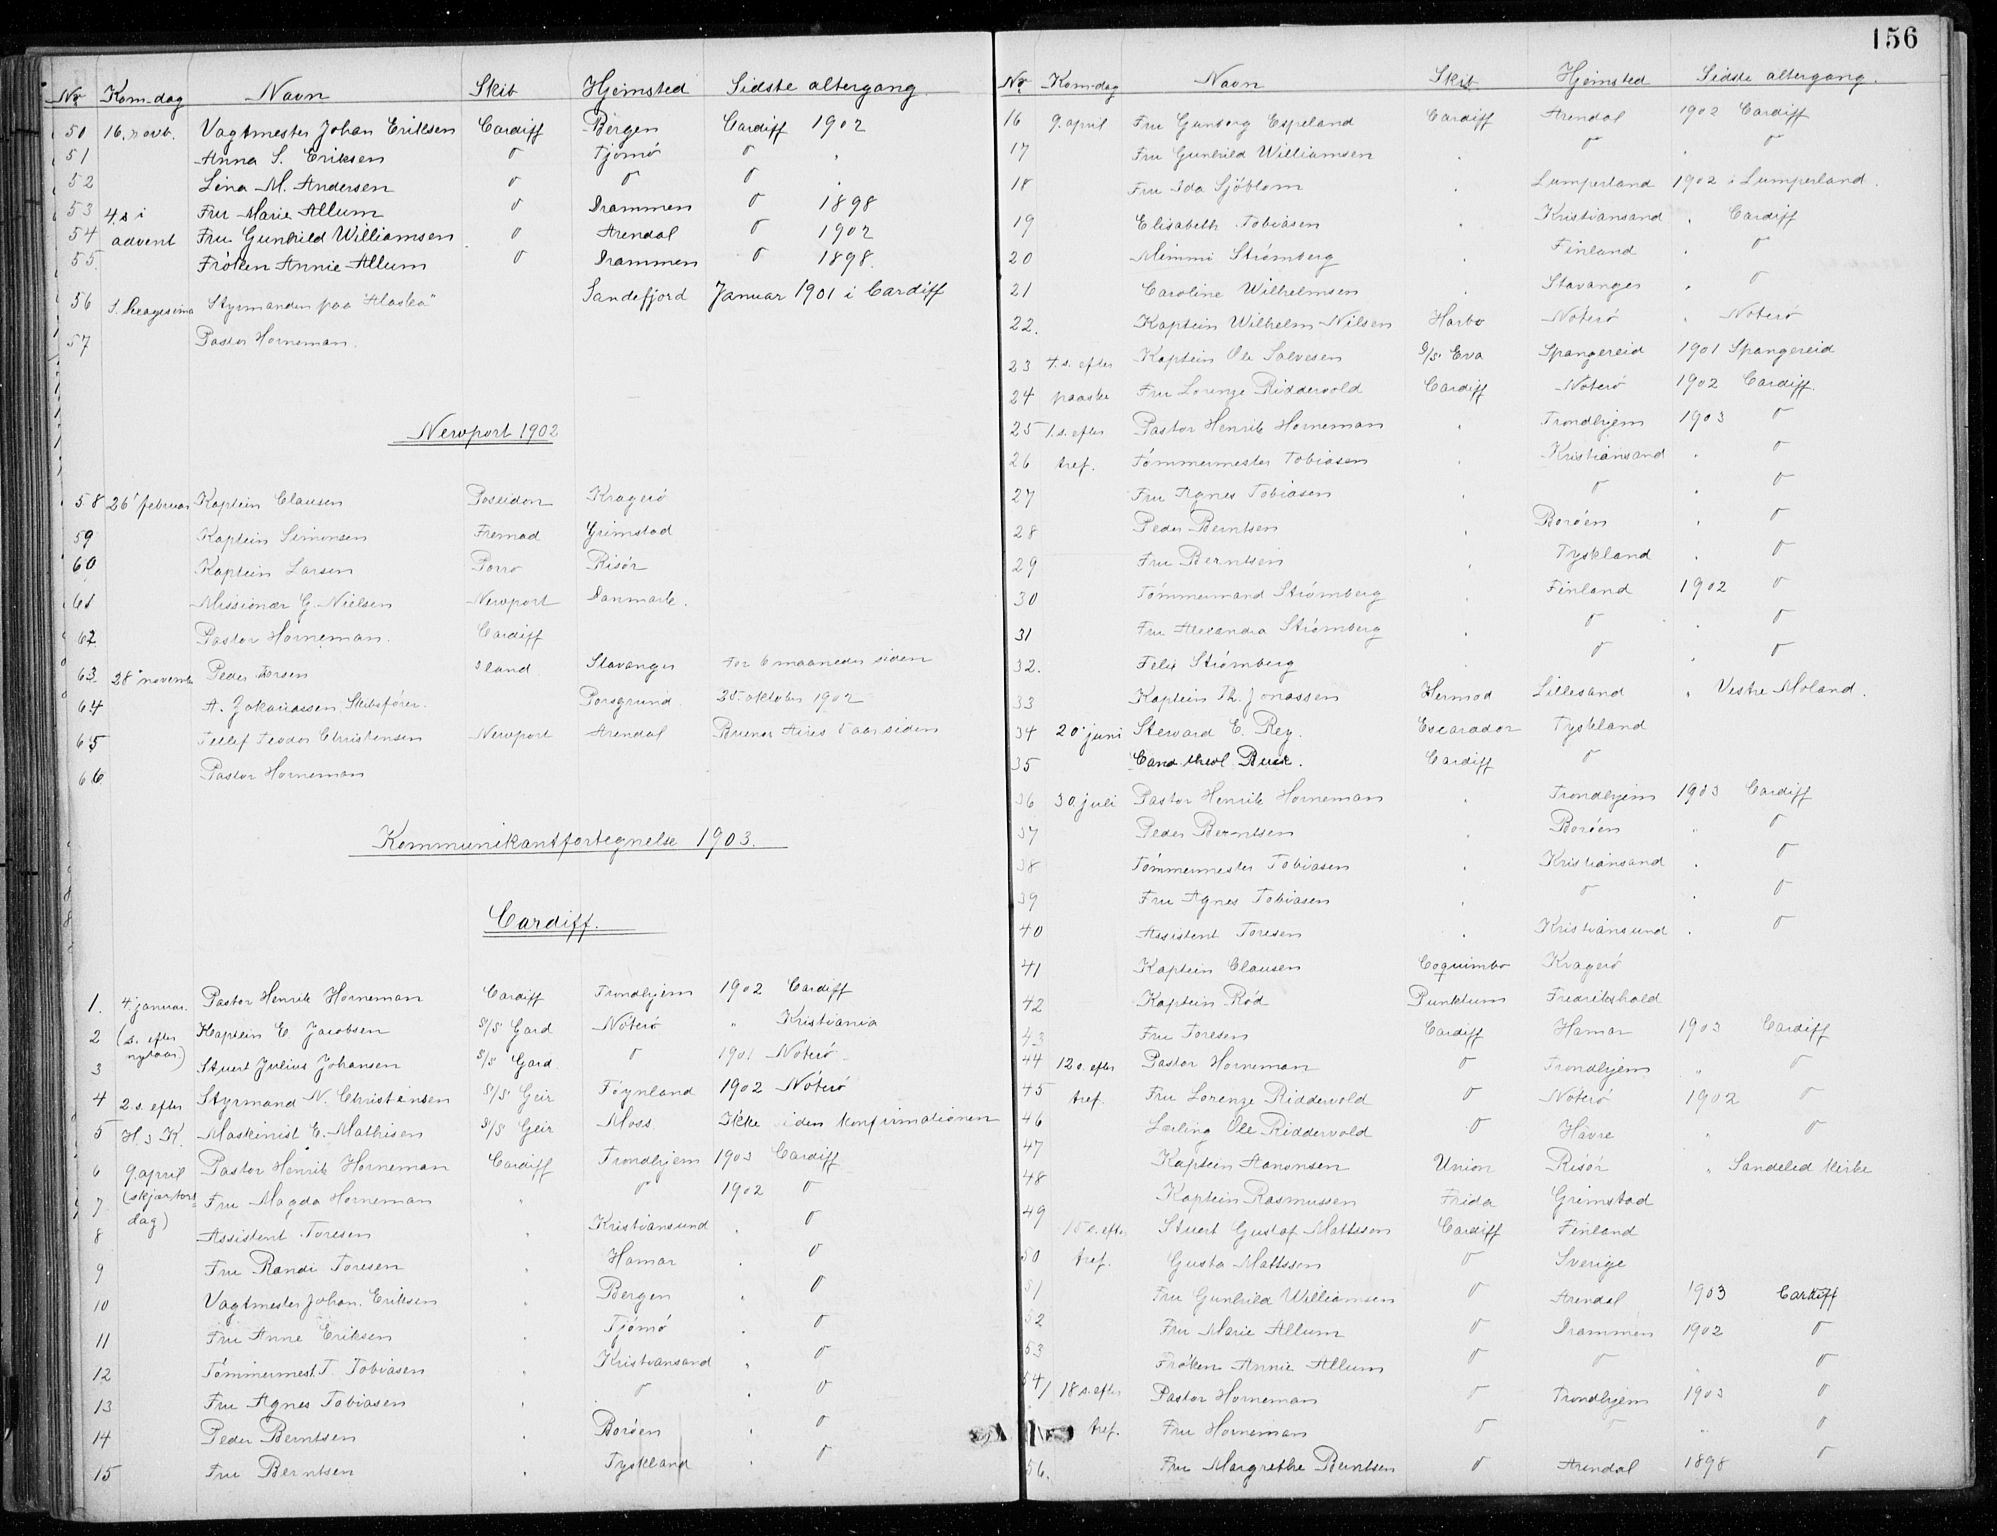 156
Nr Kom-dag Navn Skib Hjemsted Sidste altergang.
50 16. novb. Vagtmester Johan Eriksen Cardiff Bergen Cardiff 1902
51 Anna S. Eriksen " Tjømø "
52 Lina M. Andersen " " "
53 4. s i Fru Marie Allum " Drammen " 1898
54 advent Fru Gunhild Williamsen " Arendal " 1902
55. Frøken Annie Allum " Drammen " 1898.
56 Styrmanden paa "Alaska" Sandefjord Januar 1901 i Cardiff
57 Pastor Horneman.
Newport 1902
58 26 februar Kaptein Clausen Poseidon Kragerø
59 Kaptein Simonsen Fremad Grimstad
60 Kaptein Larsen Porro Risør
61 Missionær G. Nielsen Newport Danmark.
62 Pastor Horneman. Cardiff
63. 28 novemb. Peder Stavanger For 6 maaneder siden
64 A. Skibsfører. Porsgrund 25. oktober 1902
65 Tellef Teodor Christensen Newport Arendal Buenos Aires aar siden
66 Pastor Horneman
Kommunikantfortegnelse 1903.
Cardiff.
1. 4. januar. Pastor Henrik Horneman Cardiff Trondhjem 1902 Cardiff
2 (s. efter Kaptein E. Jacobsen S/S Gard Nøterø " Kristiania
nytaar)
3 Stuert Julius Johansen S/S Gard. " 1901 Nøterø
4 2. s. efter Styrmand N. Christensen S/S Geir Føynland 1902 Nøterø
5 H. 3 K. Maskinist E. Mathisen S/S Geir Moss. Ikke siden konfirmationen
6 9. april Pastor Henrik Horneman Cardiff Trondhjem 1903 Cardiff
7 (skjærtors Fru Magda Horneman " " 1902 "
dag)
8 Assistent Toresen " Kristiansund " "
9 Fru Randi Toresen " Hamar " "
10 Vagtmester Johan Eriksen " Bergen " "
11 Fru Anne Eriksen " Tjømø " "
12 Tømmermest. T. Tobiasen " Kristiansand " "
13 Fru Agnes Tobiasen " " " "
14 Peder Berntsen " Borøen " "
15 Fru Berntsen " Tyskland " "
Nr Kom-dag Navn Skib Hjemsted Sidste altergang.
16 9. april Fru Gunborg Espeland Cardiff Arendal 1902 Cardiff
17 Fru Gunhild Williamsen " " " "
18 Fru Ida Sjøblom " Lumperland 1902 i Lumperland.
19 Elisabeth Tobiasen " Kristiansand " Cardiff
20 Mimmi Strømberg " Finland " "
21 Caroline Wilhelmsen " Stavanger " "
22. Kaptein Wilhelm Nilsen Harbo Nøterø " Nøterø
23 4. s. efter Kaptein Ole Salvesen S/S Eva Spangereid 1901 Spangereid
24 paaske Fru Lorenze Riddervold Cardiff Nøterø 1902 Cardiff.
25 1. s. efter Pastor Henrik Horneman " Trondhjem 1903 "
26 tref. Tømmermester Tobiasen " Kristiansand " "
27 Fru Agnes Tobiasen " " " "
28 Peder Berntsen Borøen " "
29 Fru Berntsen " Tyskland " "
30 Tømmermand Strømberg " Finland 1902 "
31 Fru Alexandra Strømberg " " " "
32. Felix Strømberg " " " "
33 Kaptein Th. Jonassen Hermod Lillesand " Vestre Moland.
34 20 juni Steward E. Rey. Escarador Tyskland
35 Cand. theol. Cardiff "
36 30. juli Pastor Henrik Horneman " Trondhjem 1903 Cardiff
37 Peder Berntsen " Borøen " "
38 Tømmermester Tobiasen " Kristiansand " "
39 Fru Agnes Tobiasen " " " "
40 Assistent Toresen " Kristiansund " "
41 Kaptein Clausen Coquimbo Kragerø
42 Kaptein Rød Punktum Fredrikshald
43 Fru Toresen Cardiff Hamar 1903 Cardiff
44 12 s. efter Pastor Horneman " Trondhjem " "
45 tref. Fru Lorenze Riddervold " Nøterø 1902 "
46 Lærling Ole Riddervold " Havre " "
47 Kaptein Aanonsen Union Risør " Sandeled kirke
48 Kaptein Rasmussen Frida Grimstad
49 15 s. efter Stuert Gustaf Mattsson Cardiff Finland
50 tref. Gusta Mattsson " Sverige
51 Fru Gunhild Williamsen " Arendal 1903 Cardiff
52 Fru Marie Allum " Drammen 1902 "
53 Frøken Annie Allum " " " "
54 18 s. efter Pastor Horneman " Trondhjem 1903 "
tref. Fru Horneman " " " "
56. Fru Margrethe Berntsen " Arendal 1898 "